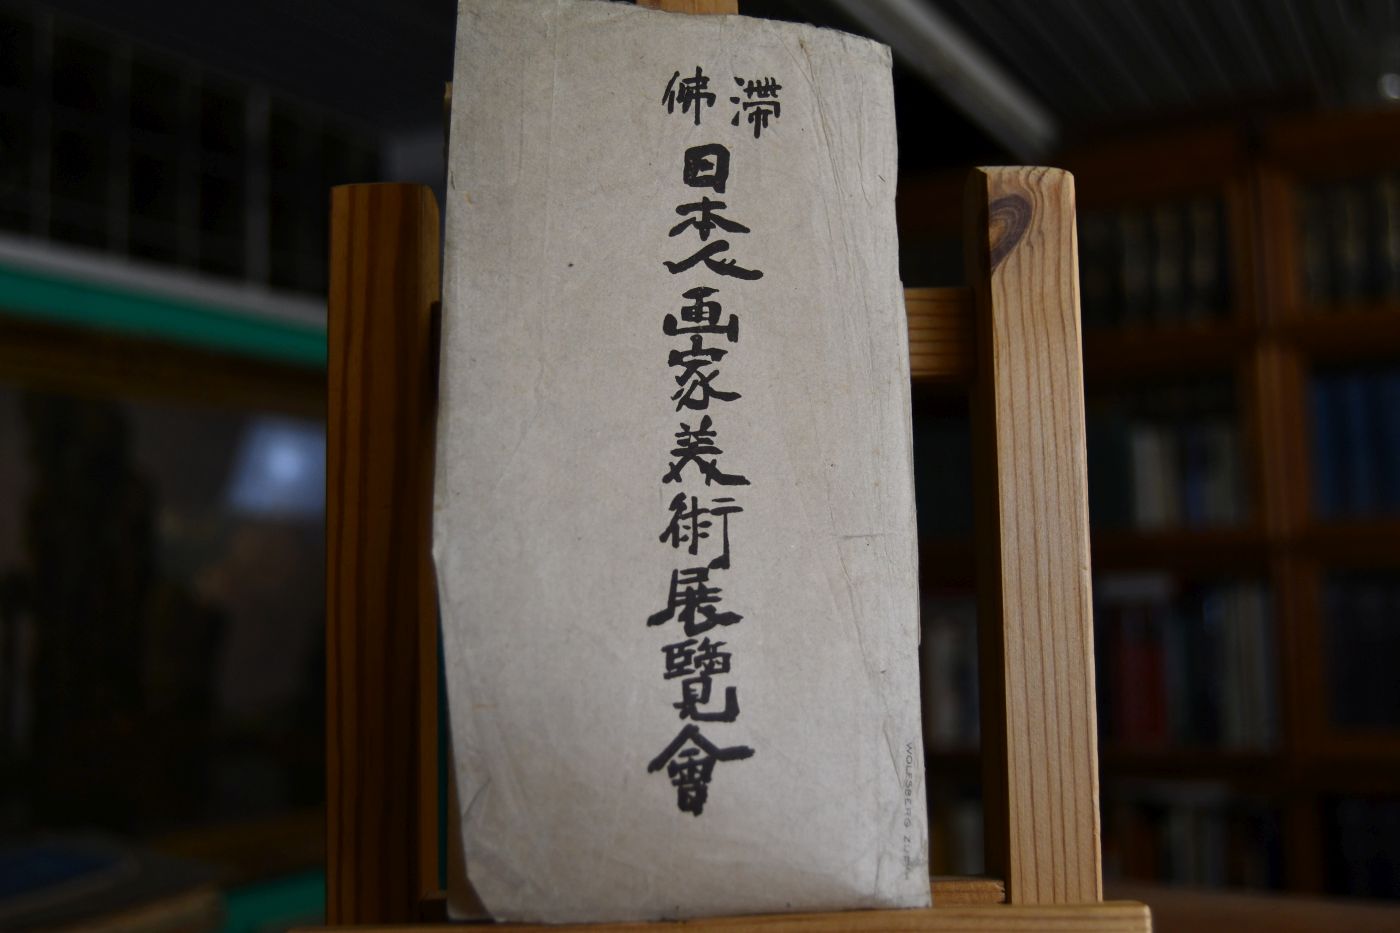 滞佛
日本人画家美術展覽會
WOLFSBERG